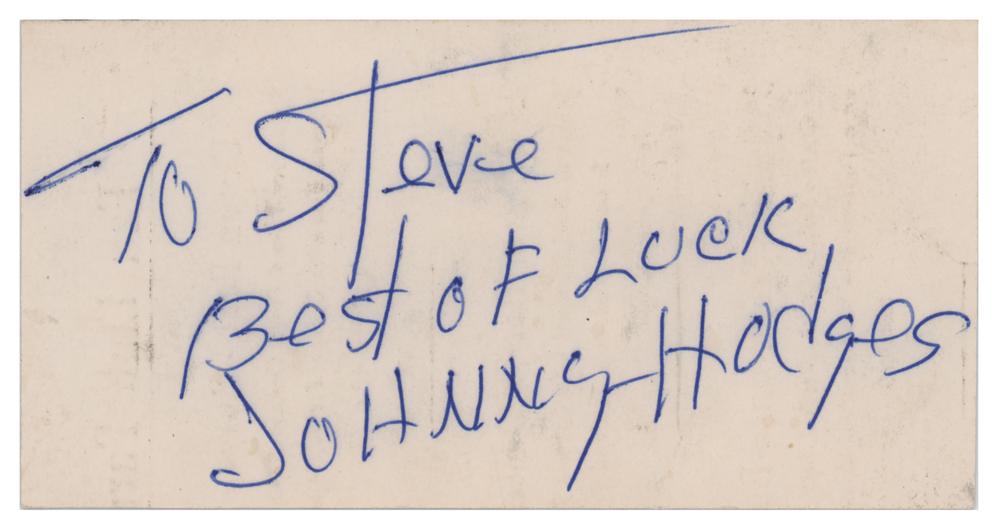 To Steve
Best of Luck
Johnny Hodges